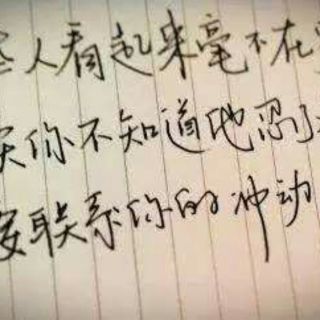 人看起来毫不在
你不知道他忍了
联系你的冲动